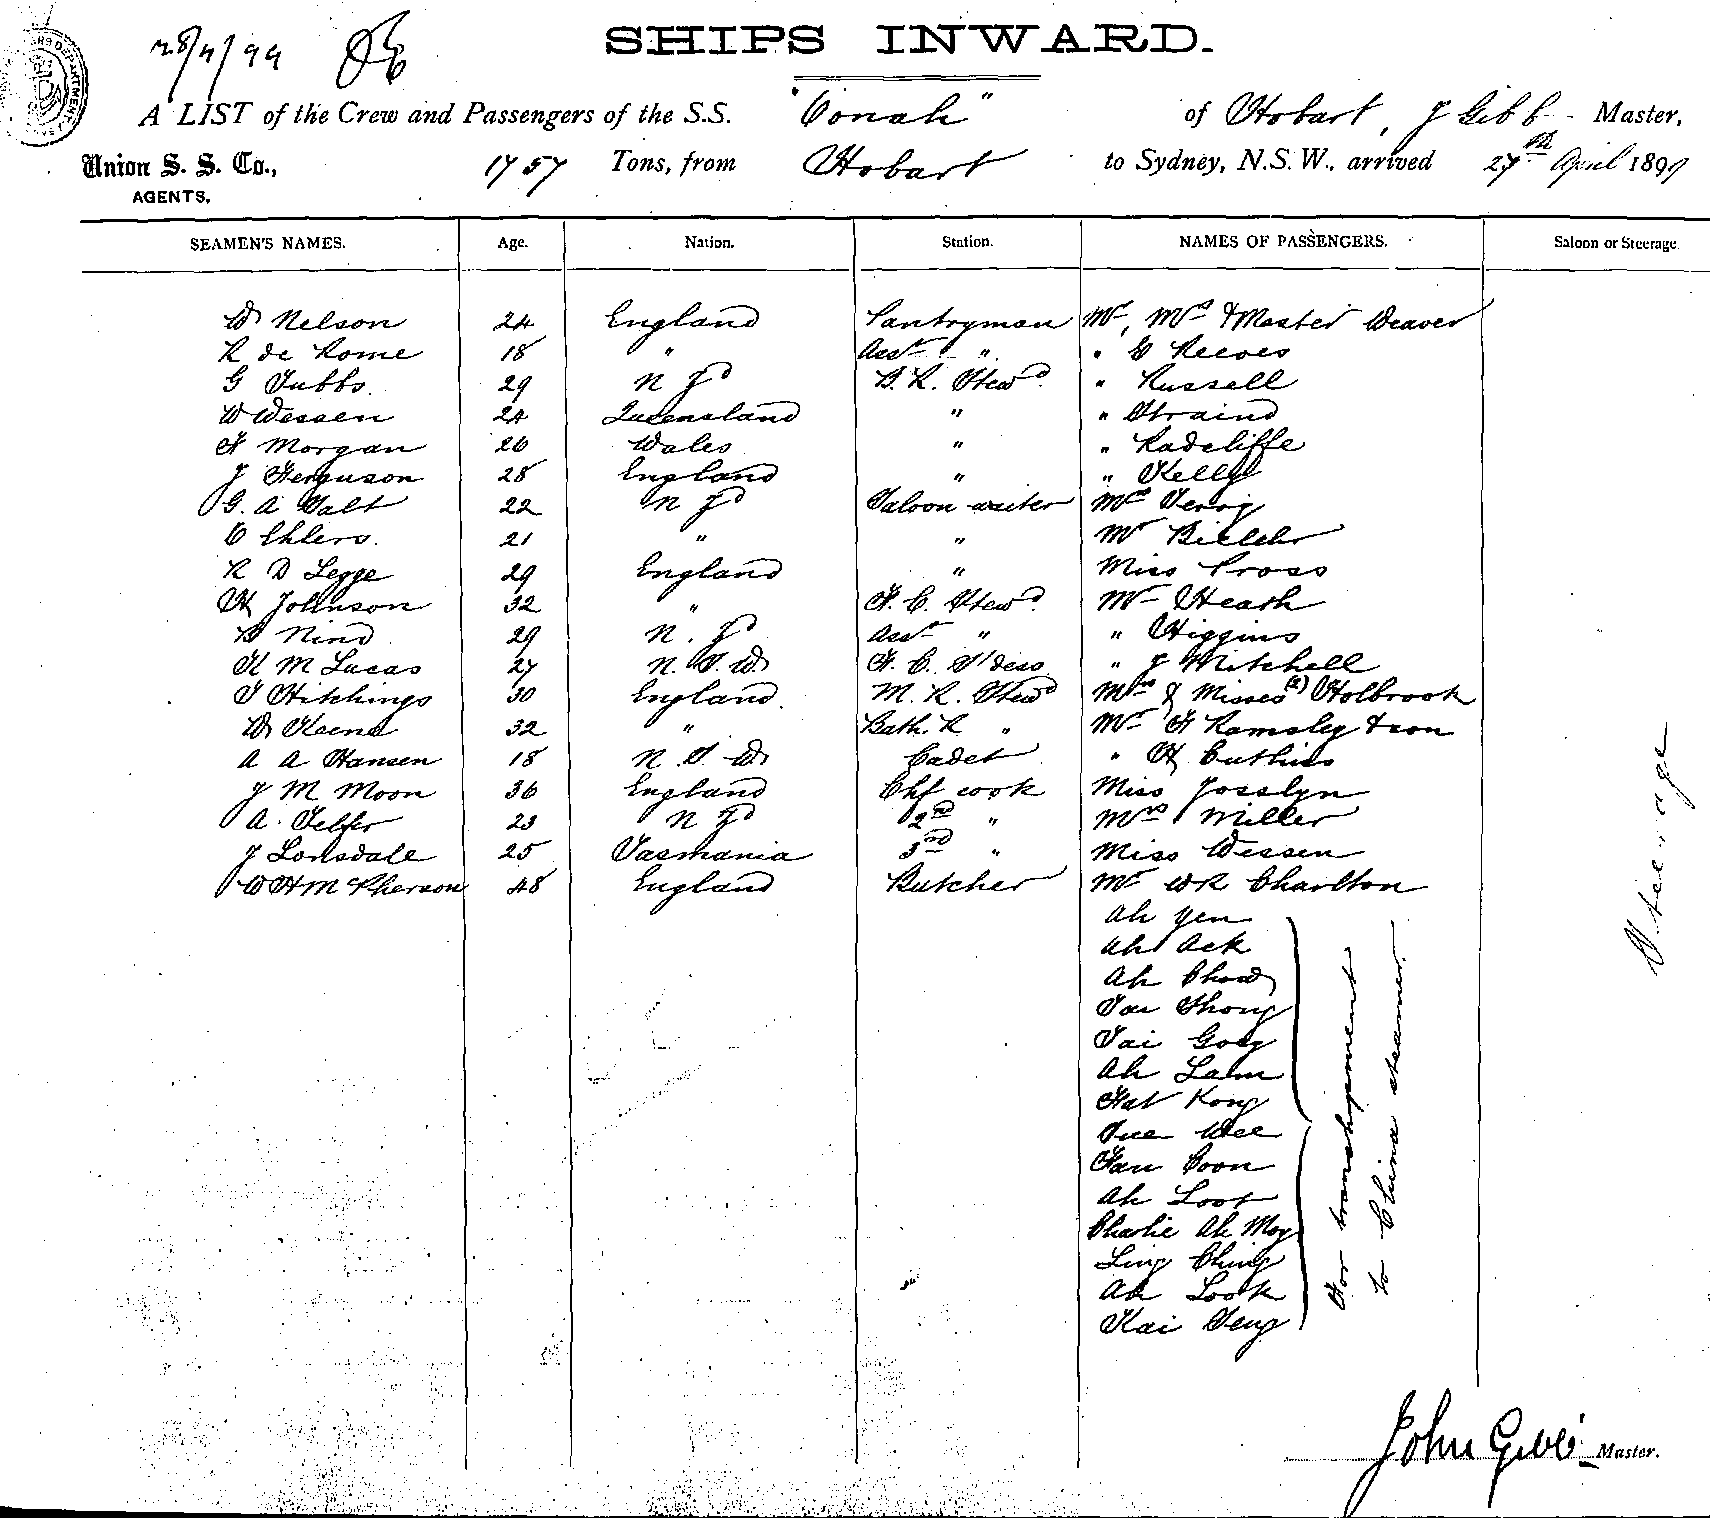 28/4/99
SHIPS INWARD.
A LIST of the Crew and Passengers of the S.S. "Oonah" of Hobart, J Gibb Master,
Union S. S. Co., 1757 Tons, from Hobart to Sydney, N.S.W., arrived 27th April 1899
AGENTS.
SEAMEN'S NAMES. Age. Nation. Station. NAMES OF PASSENGERS. Saloon or Steerage
W Nelson 24 England Pantryman Mr, Mrs & Master Weaver
R de Rome 18 " Asst " " G Reeves
G Tubbs 29 N Zd B. R. Stewd " Russell
W Wessen 24 Queensland " " Straind
F Morgan 26 Wales " " Radcliffe
J Ferguson 28 England " " Kelly
G. A Galt 22 N Zd Saloon waiter Mrs Terry
C Ehlers. 21 " " Mr
R D Legge 29 England " Miss Cross
H Johnson 32 " F. C. Stewd Mr Heath
Nind 29 N. Zd Asst " " Higgins
K M Lucas 27 N. S. W. F. C. S'dess " J Mitchell
T Hitchings 30 England M. R. Stewd Mrs & Misses (2) Holbrook
W Keene 32 " Bath. R " Mr F Ramsley & son
A A Hansen 18 N. S. W. Cadet " H
J M Moon 36 England Chf cook Miss Josslyn
A. Telfer 23 N Zd 2nd " Mrs Miller
J Lonsdale 25 Tasmania 3rd " Miss Wessen
W H McPherson 48 England Butcher Mr W R Charlton
Ah Yen
Ah Ack
Ah Chow
Tai Thong
Tai Goey
Ah Lam
Fat Kong
Tue Wee
Fan Coon
Ah Loot
Charlie Ah Moy
Ling Ching
Ah Look
Kai Teng
For transhipment
to China steamer.
Steerage
John Gibb Master.